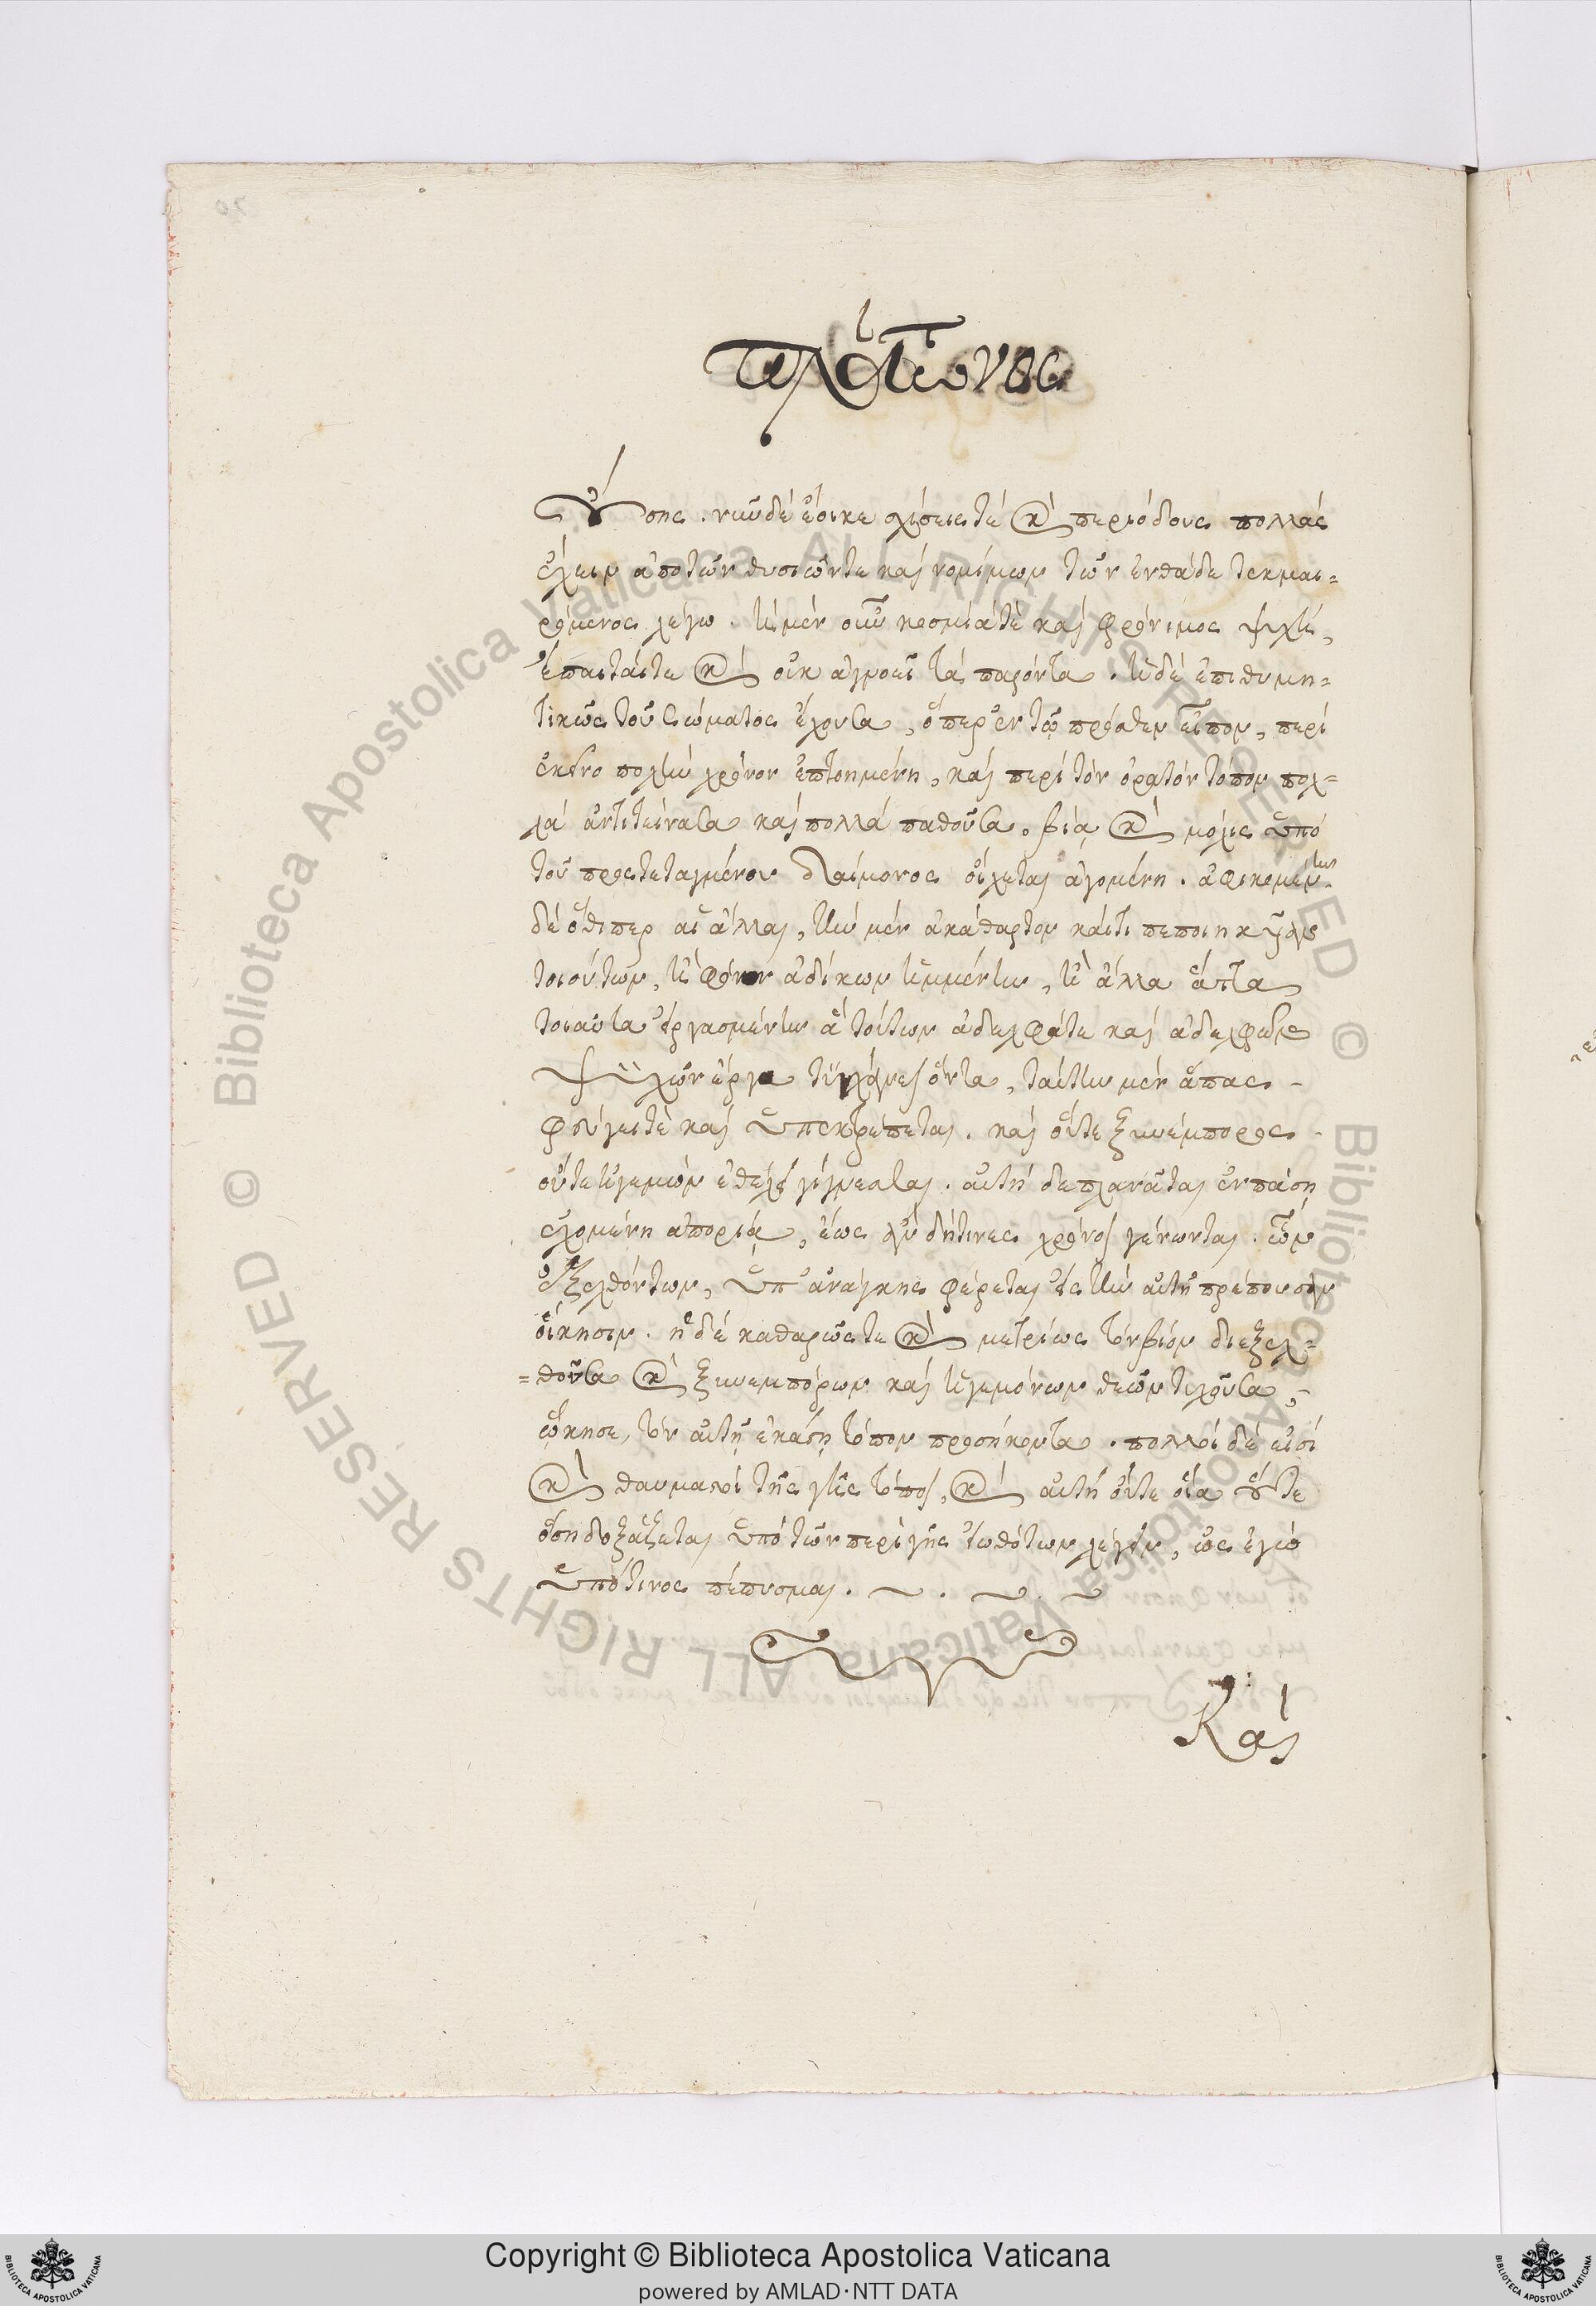 περὶ Γεωνος
οὖσης. νῦν δὲ ἔοικε σχίσεις τὲ κὶ περιόδους πολλάς
ἔχειν ἀπὸ τῶν θυσιῶν τε καὶ νομίμων τῶν ἐνθάδε τεκμαι=
ρόμενος λέγω. ἡ μὲν οὖν κοσμία τὲ καὶ φρόνιμος ψυχὴ,
ἕπεται τε κὶ οὐκ ἀγνοεῖ τὰ παρόντα. ἡ δὲ ἐπιθυμη=
τικῶς τοῦ σώματος ἔχουσα, ὅπερ ἐν τῷ πρόσθεν εἶπον, περὶ
ἐκεῖνο πολὺν χρόνον ἐπτοημένη, καὶ περὶ τὸν ὁρατὸν τόπον πολ=
λὰ ἀντιτείνασα καὶ πολλὰ παθοῦσα. βίᾳ κὶ μόλις ὑπὸ
τοῦ προστεταγμένου δαίμονος οἴχεται ἀγομένη. ἀφικομένην
δὲ ὅθι περ αἱ ἄλλαι, τὴν μὲν ἀκάθαρτον καί τι πεποιηκυῖαν
τοιοῦτον, ἢ φόνων ἀδίκων ἡμμένην, ἢ ἄλλα ἅττα
τοιαῦτα εἰργασμένην ἃ τούτων ἀδελφά τε καὶ ἀδελφῶν
ψυχῶν ἔργα τυγχάνει ὄντα, ταύτην μὲν ἅπας
φεύγει τὲ καὶ ὑπεκτρέπεται. καὶ οὔτε ξυνέμπορος
οὔτε ἡγεμὼν ἐθέλει γίγνεσθαι. αὐτὴ δὲ πλανᾶται ἐν πάσῃ
ἐχομένη ἀπορίᾳ, ἕως ἂν δή τινες χρόνοι γένωνται. ὧν
ἐξελθόντων, ὑπ' ἀνάγκης φέρεται εἰς τὴν αὐτῇ πρέπουσαν
οἴκησιν. ἡ δὲ καθαρῶς τε κὶ μετρίως τὸν βίον διεξελ=
=θοῦσα κὶ ξυνεμπόρων καὶ ἡγεμόνων θεῶν τυχοῦσα,
ᾤκησε, τὸν αὐτῇ ἑκάστῃ τόπον προσήκοντα. πολλοὶ δέ εἰσὶ
κὶ θαυμαστοὶ τῆς γῆς τόποι, κὶ αὐτὴ οὔτε οἵα οὔτε
ὅση δοξάζεται ὑπὸ τῶν περὶ γῆς εἰωθότων λέγειν, ὡς ἐγὼ
ὑπό τινος πέπυσμαι.
Καὶ
Copyright © Biblioteca Apostolica Vaticana
powered by AMLAD·NTT DATA